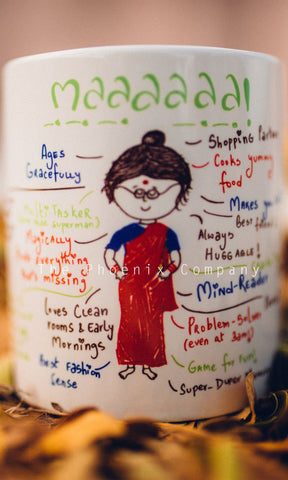 maaaaaa!
Ages
Gracefully
Multi Tasker
superman?)
Magically
finds everything
that's missing
Loves Clean
rooms & Early
Mornings
Best Fashion
Sense
Shopping Partner
Cooks yummy
food
Makes you
Best friend
Always
HUGGABLE!
Mind-Reader
Problem-Solver
(even at 3am)
Game for Fun!
Super-Duper
The Phoenix Company